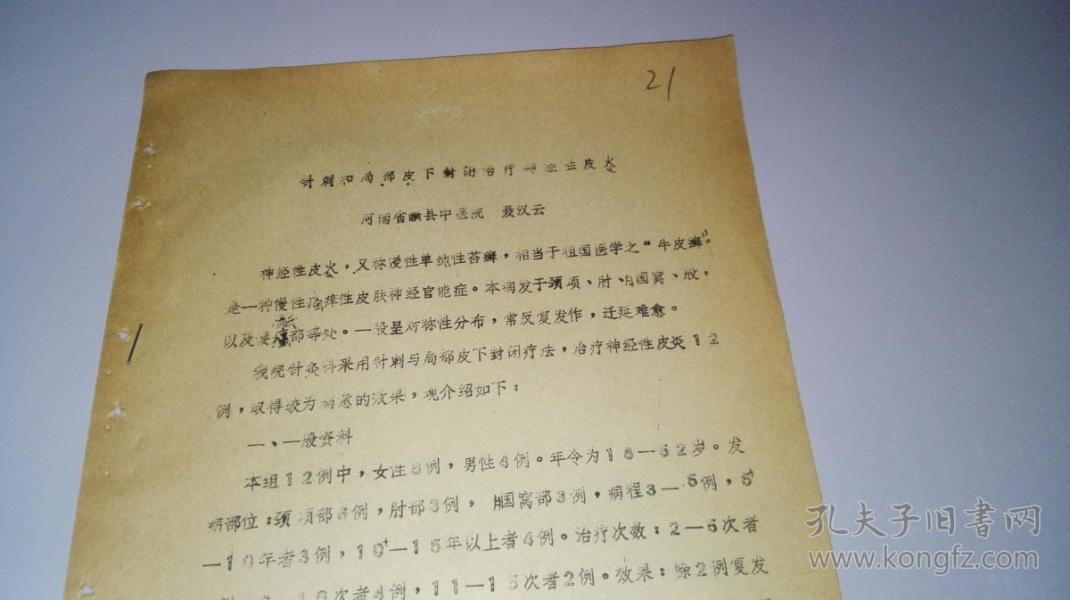 21
针刺和局部皮下封闭治疗神经性皮炎
河南省 县中医院 聂汉云
神经性皮炎，又称慢性单纯性苔癣，相当于祖国医学之“牛皮癣”。
是一种慢性瘙痒性皮肤神经官能症。本病发于颈项、肘、腘窝、
以及 部等处。一般呈对称性分布，常反复发作，迁延难愈。
我院针灸科采用针刺与局部皮下封闭疗法，治疗神经性皮炎12
例，取得较为满意的效果，现介绍如下：
一、一般资料
本组12例中，女性8例，男性4例。年令为18—52岁。发
病部位：颈项部6例，肘部3例，腘窝部3例，病程3—5例，5⁺
—10年者3例，10⁺—15年以上者4例。治疗次数：2—5次者
10次者4例，11—15次者2例。效果：除2例复发
孔夫子旧书网
www.kongfz.com